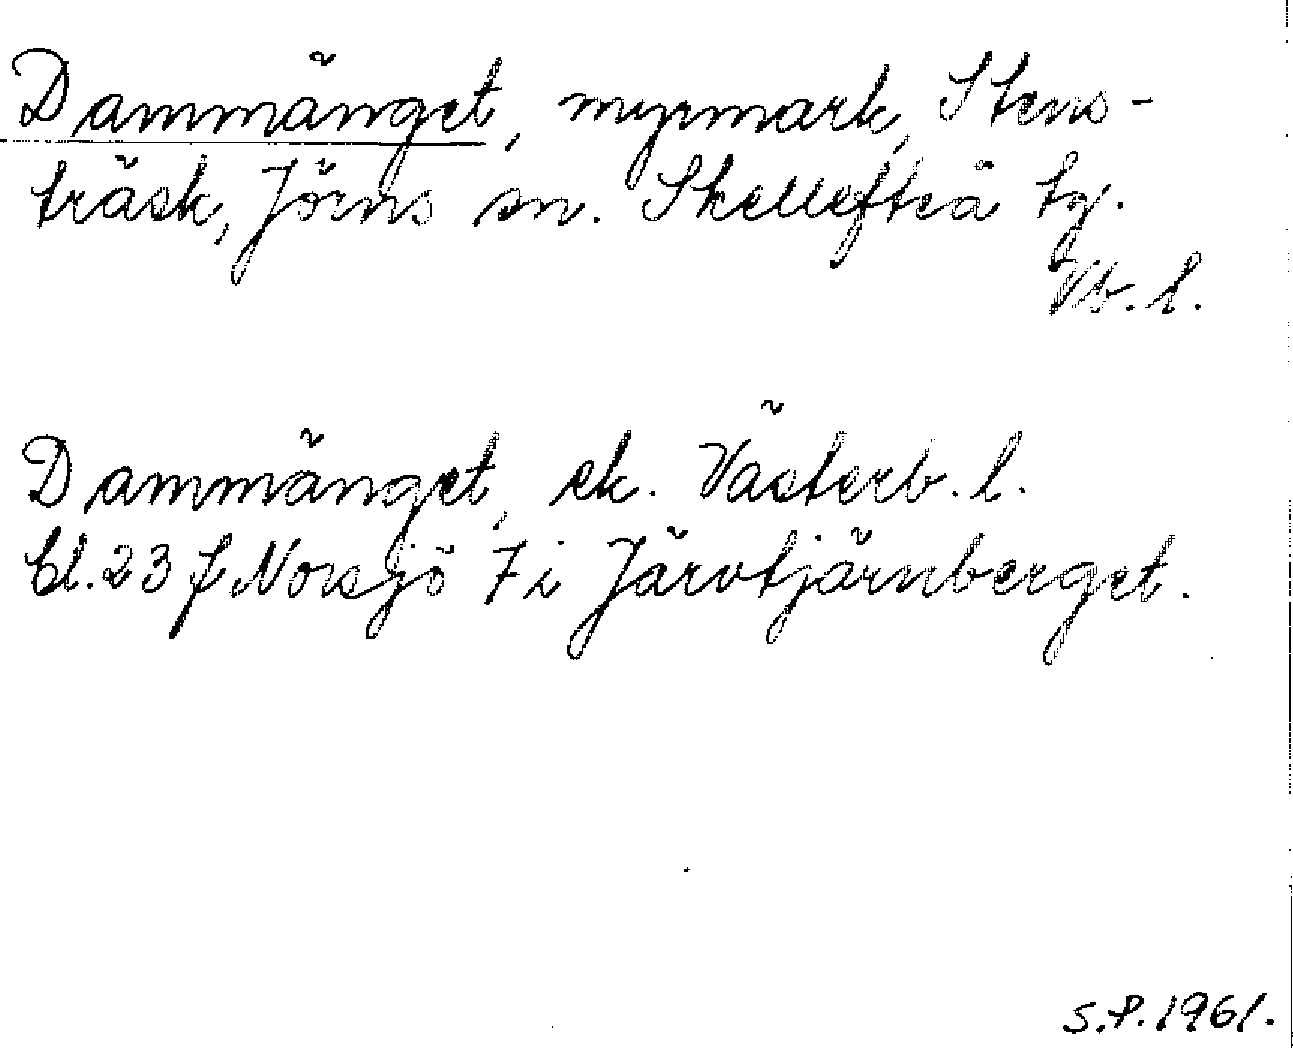 Dammänget, myrmark, Stens-
träsk, Jörns sn. Skellefteå tg.
Vb. l.
Dammänget, ek. Västerb. l.
bl. 23 J Norsjö 7 i Järvtjärnberget.
S.P. 1961.